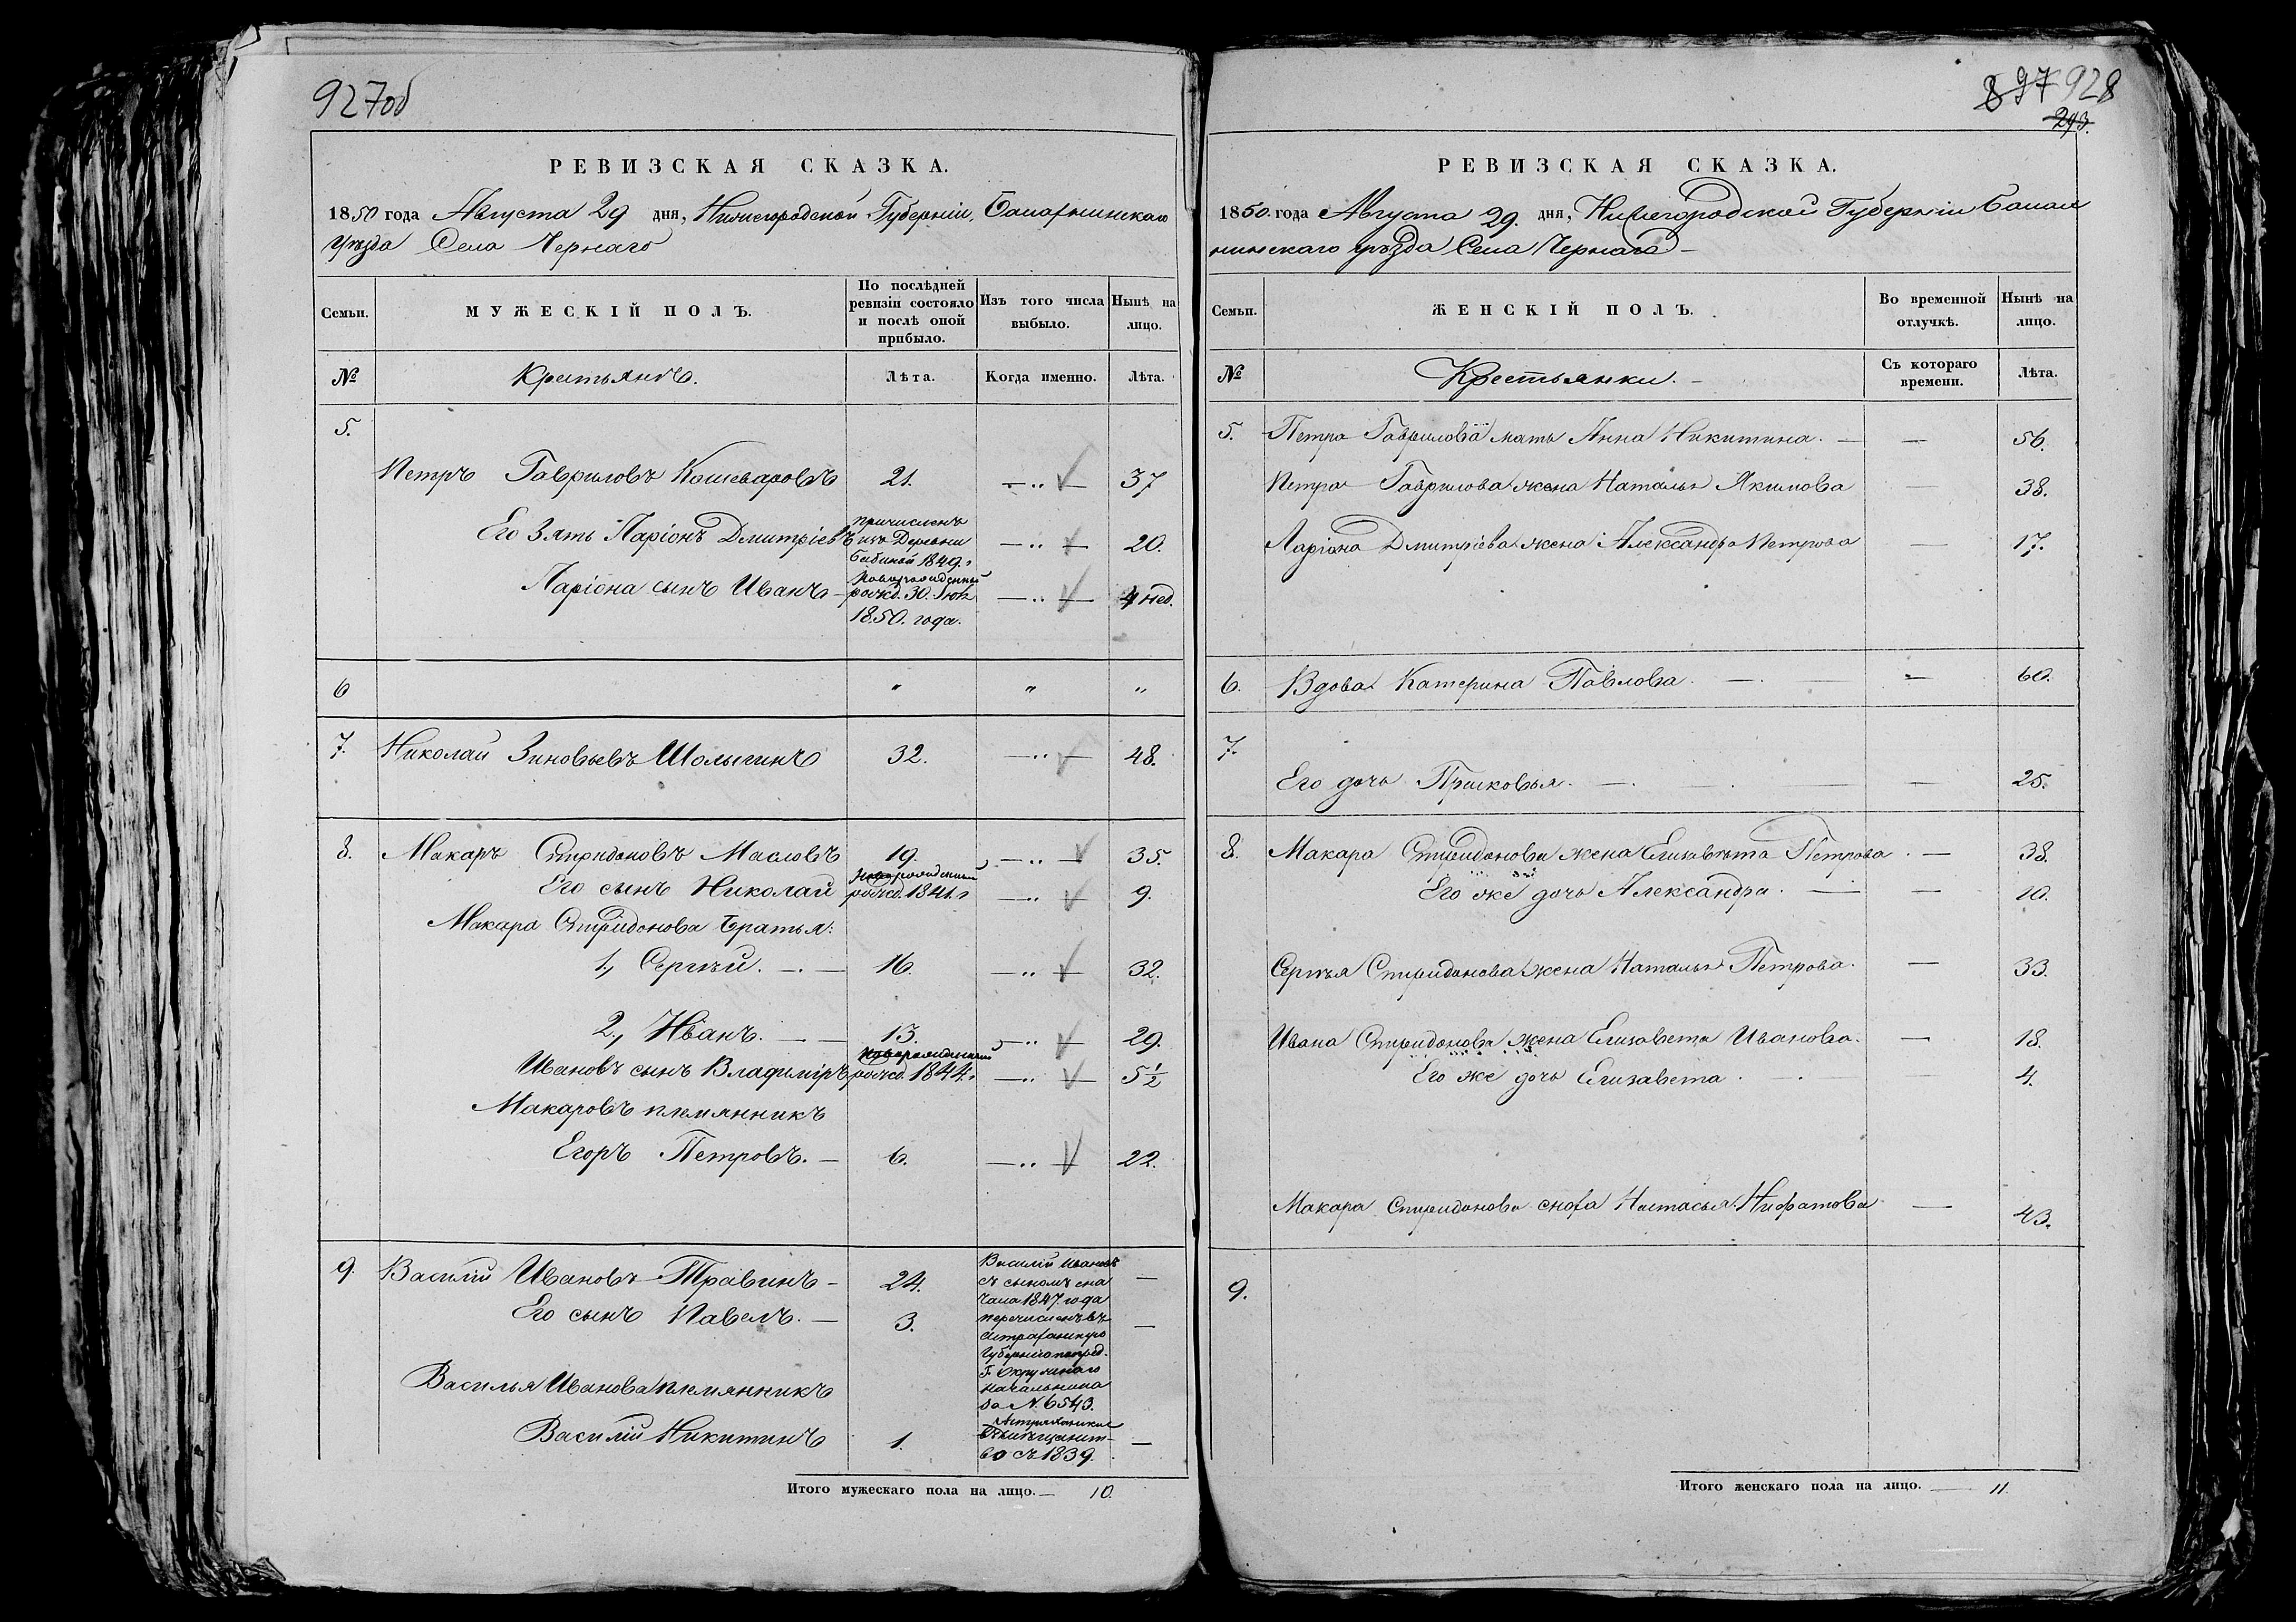 927об
РЕВИЗСКАЯ СКАЗКА.
1850 года Августа 29 дня, Нижегородской Губерніи, Балахнинскаго
Уѣзда Села Чернаго
Семьи.
МУЖЕСКІЙ ПОЛЪ.
По послѣдней ревизіи состояло и послѣ оной прибыло.
Изъ того числа выбыло.
Нынѣ на лицо.
№
Крестьянъ.
Лѣта.
Когда именно.
Лѣта.
5.
Петръ Гавриловъ Кашеваровъ 21. —··— 37
Его Зять Ларіонъ Дмитріевъ причисленъ изъ Деревни 1849. —··— 20.
Ларіона сынъ Иванъ — новорожденный рожд. 30. Іюля 1850. года. —··— 4 нед.
6 " " "
7. Николай Зиновьевъ Шолыгинъ 32. —··— 48.
8. Макаръ Спиридоновъ Масловъ 19. —··— 35.
Его сынъ Николай новорожденный рожд. 1841. —··— 9.
Макара Спиридонова братья:
1., Сергѣй. —.— 16. —··— 32.
2., Иванъ. — — 13. —··— 29.
Ивановъ сынъ Владиміръ новорожденный рожд. 1844. —··— 5½
Макаровъ племянникъ
Егоръ Петровъ. — 6. —··— 22.
9. Василій Ивановъ Травинъ — 24. —
Его сынъ Павелъ. — 3. —
Василій Ивановъ
съ сыномъ сна
чала 1847. года
перечисленъ въ
Астраханскую
Губернію по пред.
Г. Окружнаго
Начальника
за №. 6543.
Василья Иванова племянникъ
Василій Никитинъ 1. —
Астраханское
во съ 1839.
Итого мужескаго пола на лицо. — 10.
897 928
293.
РЕВИЗСКАЯ СКАЗКА.
1850. года Августа 29. дня, Нижегородской Губерніи Балах
нинскаго уѣзда Села Чернаго —
Семьи.
ЖЕНСКІЙ ПОЛЪ.
Во временной отлучкѣ.
Нынѣ на лицо.
№
Крестьянки. —
Съ котораго времени.
Лѣта.
5. Петра Гаврилова мать Анна Никитина. — — 56.
Петра Гаврилова жена Наталья Якимова — 38.
Ларіона Дмитріева жена Александра Петрова — 17.
6. Вдова Катерина Павлова. — — 60.
7.
Его дочь Прасковья. — — 25.
8. Макара Спиридонова жена Елизавета Петрова. — 38.
Его же дочь Александра. — — 10.
Сергѣя Спиридонова жена Наталья Петрова. — 33.
Ивана Спиридонова жена Елизавета Иванова. — 18.
Его же дочь Елизавета. — 4.
Макара Спиридонова сноха Настасья Нифатова — 43.
9.
Итого женскаго пола на лицо. — 11.